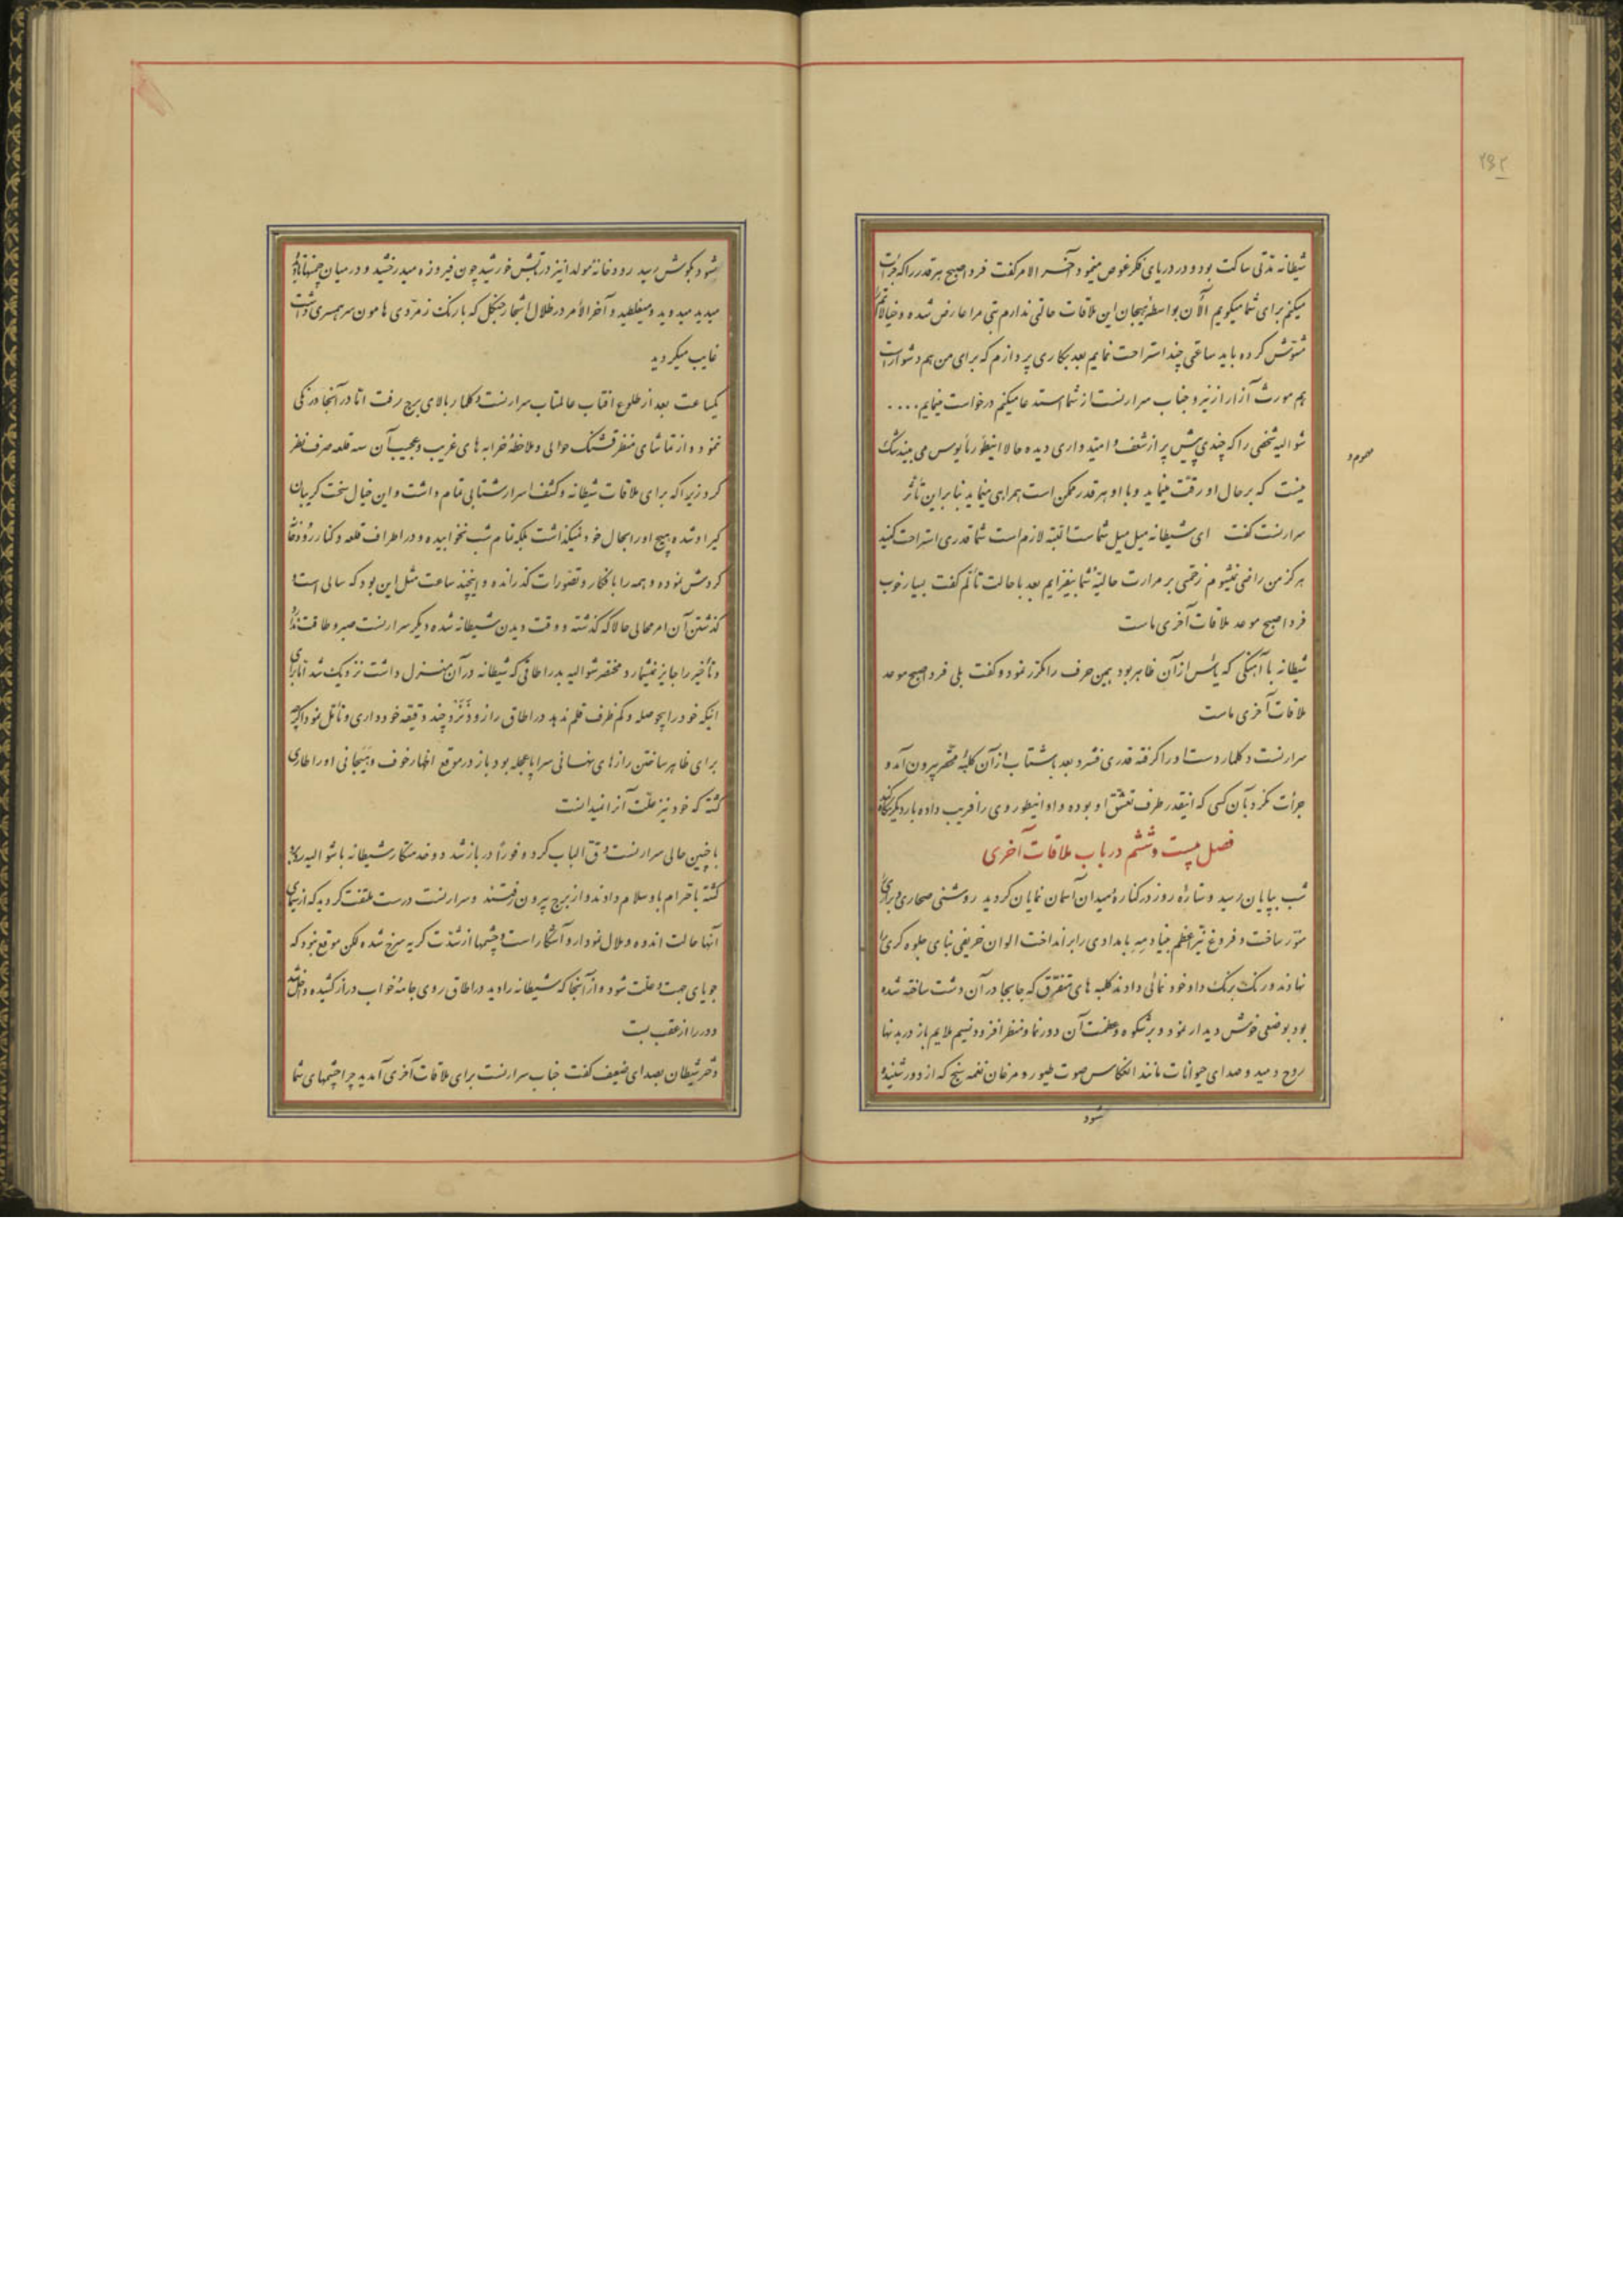 ۲۹۲
شیطانه مدتی ساکت بود و در دریای فکر غوص مینمود آخر الامر گفت فردا صبح هر قدر را که جرأت
میکنم برای شما میگویم الآن بواسطهٔ هیجان این ملاقات حالتی ندارم تبی مرا عارض شده و خیالاتم را
مشوش کرده باید ساعتی چند استراحت نمایم بعد بکاری پردازم که برای من هم دشوار است
هم مورث آزار ازینرو جناب سرارنست از شما استدعا میکنم درخواست مینمایم ....
شوالیه شخصی را که چندی پیش پر از شعف و امیدواری دیده حالا اینطور مأیوس می بیند شک
محروم و
نیست که بر حال او رقت مینماید و با او هر قدر ممکن است همراهی مینماید بنابراین تأثر
سرارنست گفت ای شیطانه میل میل شماست البته لازم است شما قدری استراحت کنید
هرگز من راضی نمیشوم زخمی بر مرارت حالیهٔ شما بیفزایم بعد با حالت تألم گفت بسیار خوب
فردا صبح موعد ملاقات آخری ماست
شیطانه با آهنگی که یأس از آن ظاهر بود همین حرف را مکرر نمود و گفت بلی فردا صبح موعد
ملاقات آخری ماست
سرارنست دکلمار دست او را گرفته قدری فشرد بعد بشتاب از آن کلبهٔ محقر بیرون آمد و
جرأت نکرد بآن کسی که اینقدر طرف تعشق او بوده و او اینطور وی را فریب داده بار دیگر نگاه کند
فصل بیست و ششم در باب ملاقات آخری
شب بپایان رسید و ستاره روز در کنارهٔ میدان آسمان نمایان گردید روشنی صحاری و براری را
منور ساخت و فروغ نیر اعظم بنیاد مه بامدادی را برانداخت الوان خریفی بنای جلوه گری را
نهادند و رنگ برنگ داد خود نمائی دادند کلبه های متفرق که جابجا در آن دشت ساخته شده
بود بوضعی خوش دیدار نمود و بر شکوه و عظمت آن دورنما و منظر افزود و نسیم ملایم باز در بدنها
روح دمید و صدای حیوانات مانند انعکاس صوت طیور و مرغان نغمه سنج که از دور شنیده
شود
شود بگوش رسید رودخانهٔ مولدا نیز در تابش خورشید چون فیروزه میدرخشید و در میان چمنها
میدید میدوید و میغلطید و آخر الأمر در ظلال اشجار جنگل که با رنگ زمردی هامون سر همسری داشت
غایب میگردید
یکساعت بعد از طلوع افتاب عالمتاب سرارنست دکلمار بالای برج رفت اما در آنجا درنگی
ننمود و از تماشای منظر قشنگ حوالی و ملاحظهٔ خرابه های غریب و عجیب آن سه قلعه صرف نظر
کرد زیرا که برای ملاقات شیطانه و کشف اسرار شتابی تمام داشت و این خیال سخت گریبان
گیر او شده هیچ او را بحال خود نمیگذاشت بلکه تمام شب نخوابیده و در اطراف قلعه و کنار رودخانه
گردش نموده و همه را بافکار و تصورات گذرانده و اینچند ساعت مثل این بود که سالی است
گذشتن آن امر محالی حالا که گذشته و وقت دیدن شیطانه شده دیگر سرارنست صبر و طاقت ندارد
و تأخیر را جایز نمیشمارد مختصر شوالیه بدر اطاقی که شیطانه در آن منزل داشت نزدیک شد اما برای
اینکه خود را بیحوصله و کم ظرف قلم ندهد در اطاق را زود نزد چند دقیقه خودداری و تأمل نمود اگرچه
برای ظاهر ساختن رازهای نهانی سراپا عجله بود باز در موقع اظهار خوف و هیجانی او را طاری
گشته که خود نیز علت آنرا نمیدانست
با چنین حالی سرارنست دق الباب کرد و فوراً در باز شد دو خدمتکار شیطانه با شوالیه
گشته باحترام باو سلام دادند و از برج بیرون رفتند و سرارنست درست ملتفت گردید که از سیمای
آنها حالت اندوه و ملال نمودار و آشکار است و چشمها از شدت گریه سرخ شده لکن موقع نبود که
جویای جهت و علت شود و از آنجا که شیطانه را دید در اطاق روی جامهٔ خواب دراز کشیده داخل شد
و در را از عقب بست
دختر شیطان بصدای ضعیف گفت جناب سرارنست برای ملاقات آخری آمدید چرا چشمهای شما